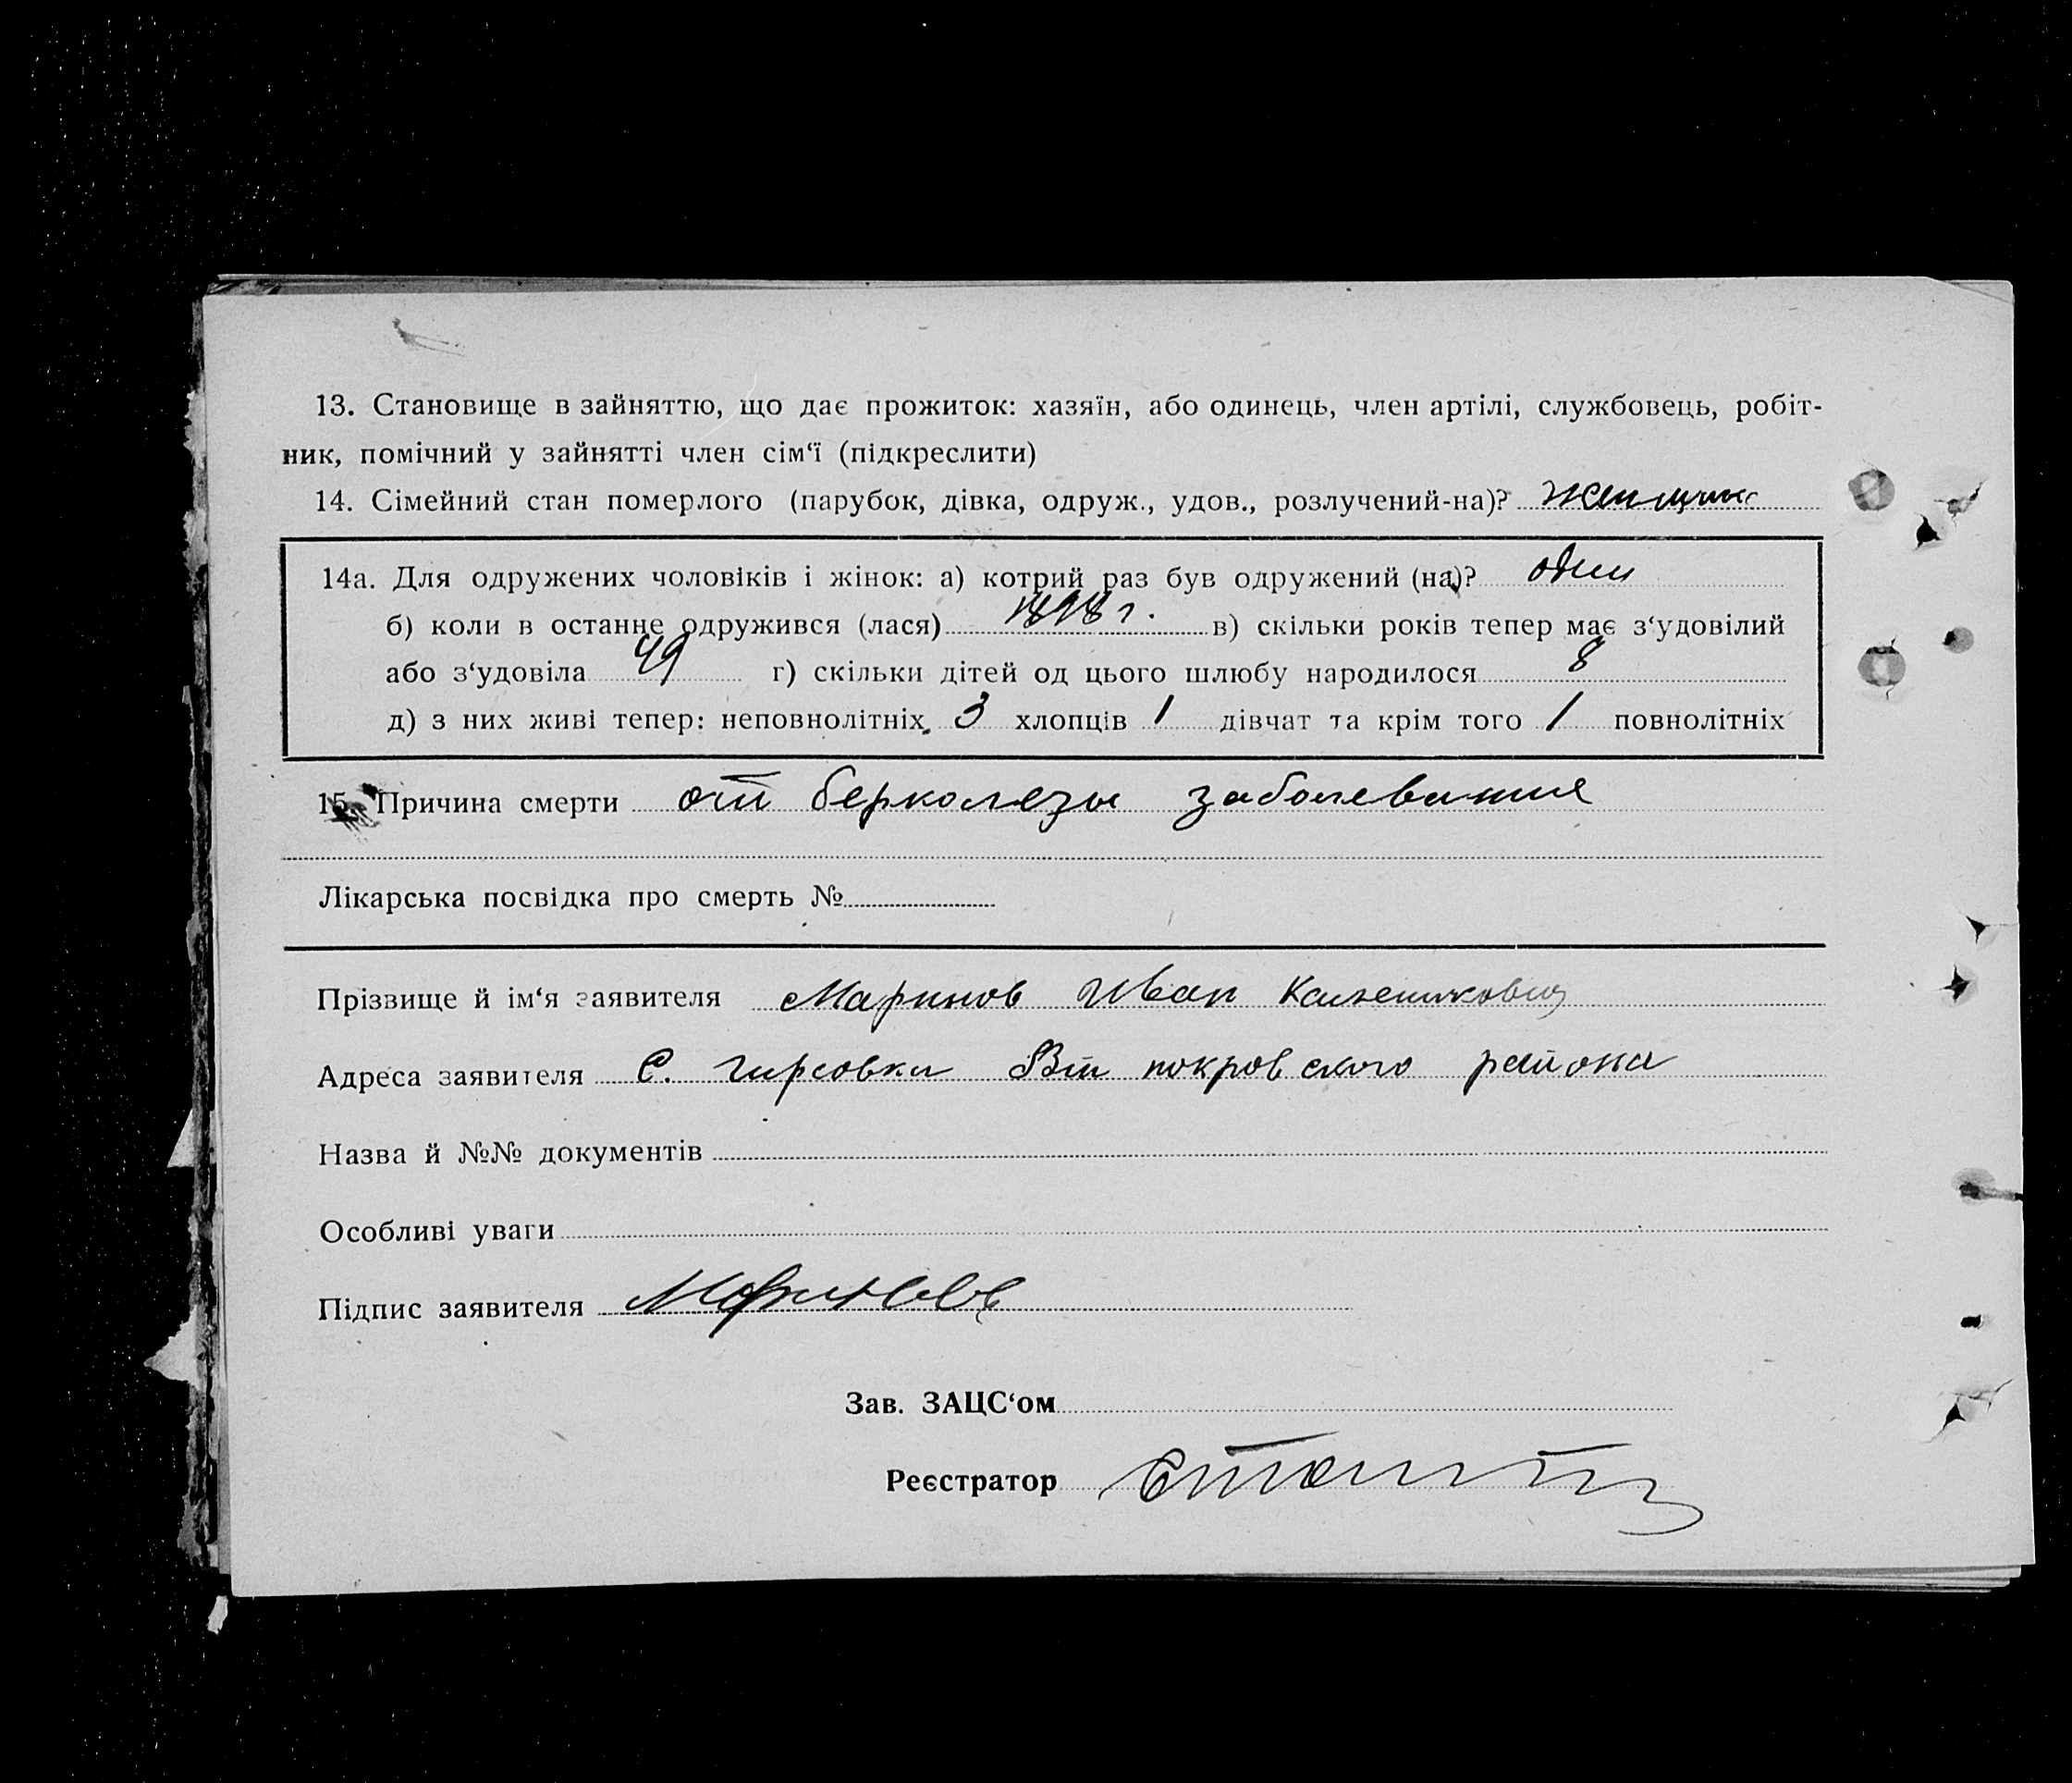 13. Становище в зайняттю, що дає прожиток: хазяїн, або одинець, член артілі, службовець, робіт-
ник, помічний у зайнятті член сім‘ї (підкреслити)
14. Сімейний стан померлого (парубок, дівка, одруж., удов., розлучений-на)? женщина
14а. Для одружених чоловіків і жінок: а) котрий раз був одружений (на)? один
б) коли в останнє одружився (лася) 1898 г. в) скільки років тепер має з‘удовілий
або з‘удовіла 49 г) скільки дітей од цього шлюбу народилося 8
д) з них живі тепер: неповнолітніх 3 хлопців 1 дівчат та крім того 1 повнолітніх
15. Причина смерти от берколезы заболевания
Лікарська посвідка про смерть №
Прізвище й ім‘я заявителя Маринов Иван
Адреса заявителя С. Гирсовки покровского района
Назва й №№ документів
Особливі уваги
Підпис заявителя Маринов
Зав. ЗАЦС‘ом
Реєстратор